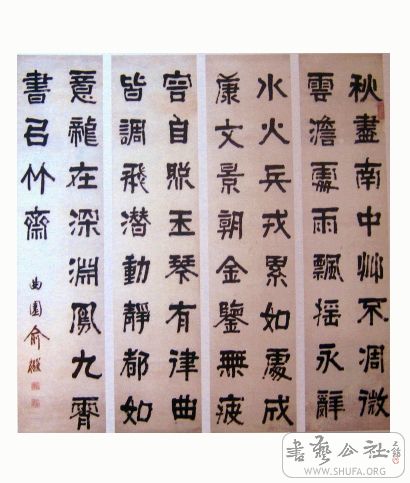 秋盡南中艸不凋微
雲澹雨飄摇永辭
水火兵戎累如處成
康文景朝金鑒無疲
自玉琴有律曲
皆調飛潛動靜都如
意龍在深淵鳳九霄
書召竹齋
曲園俞樾
書藝公社
WWW.SHUFA.ORG